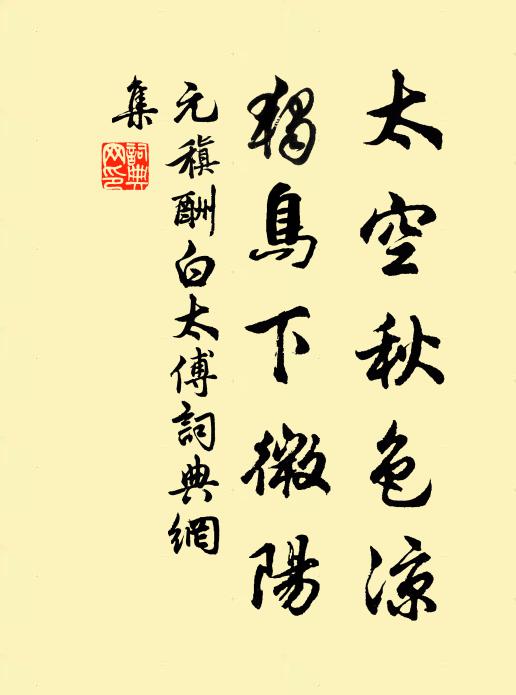 太空秋色涼
獨鳥下微陽
元稹酬白太傅詞典網
集
詞典
網印